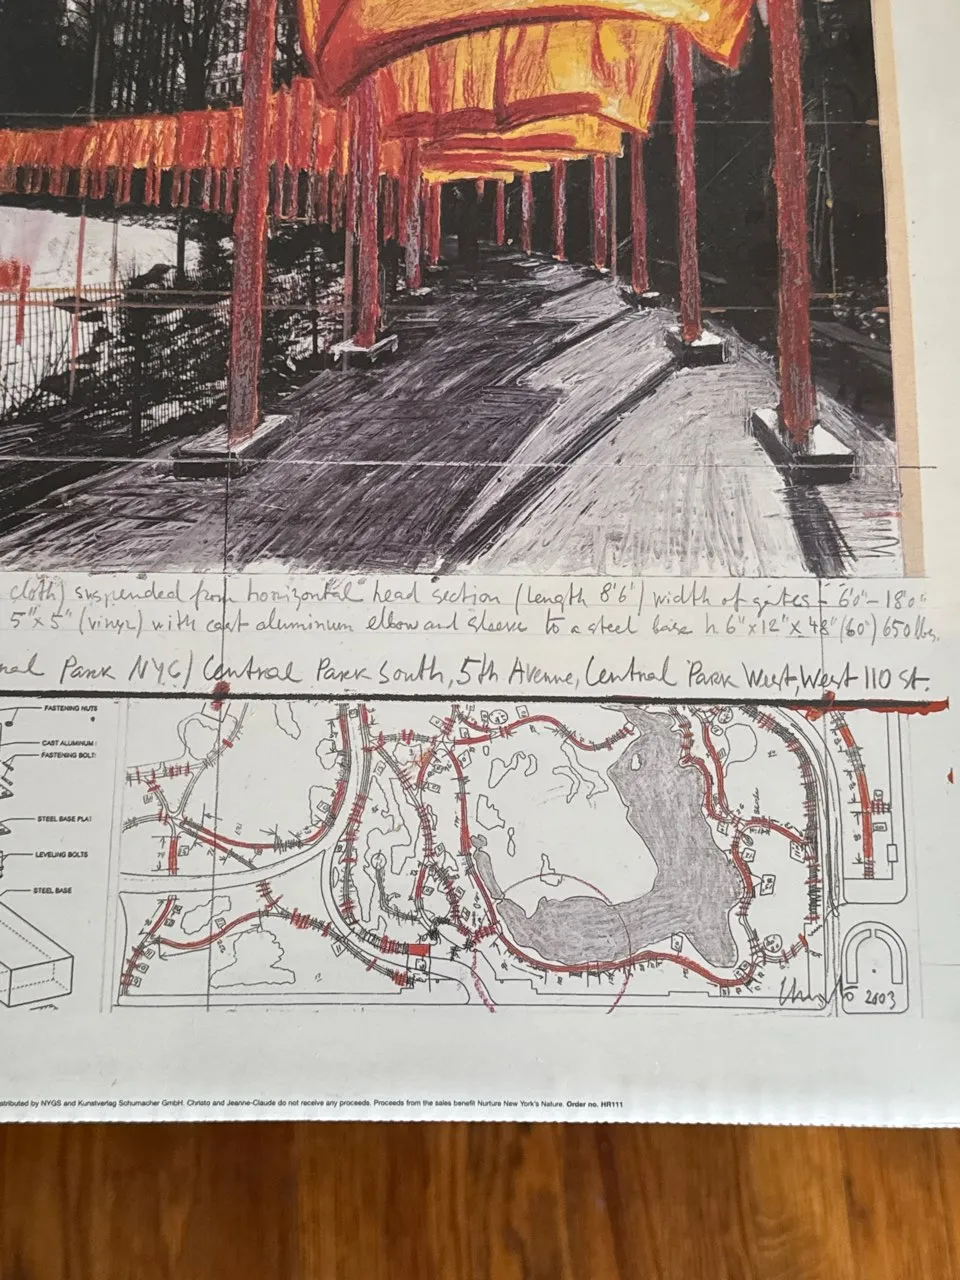 cloth) suspended from horizontal head section (length 8'6") width of gates - 6'0"- 18'0"
5"x 5" (vinyl) with cast aluminum elbow and sleeve to a steel base h 6"x12"x 48" (60") 650 lbs.
nal Park NYC) Central Park South, 5th Avenue, Central Park West, West 110 st.
FASTENING NUTS
CAST ALUMINUM
FASTENING BOLT
STEEL BASE PLAT
LEVELING BOLTS
STEEL BASE
Christo 2003
stributed by NYGS and Kunstverlag Schumacher GmbH. Christo and Jeanne-Claude do not receive any proceeds. Proceeds from the sales benefit Nurture New York's Nature. Order no. HR111